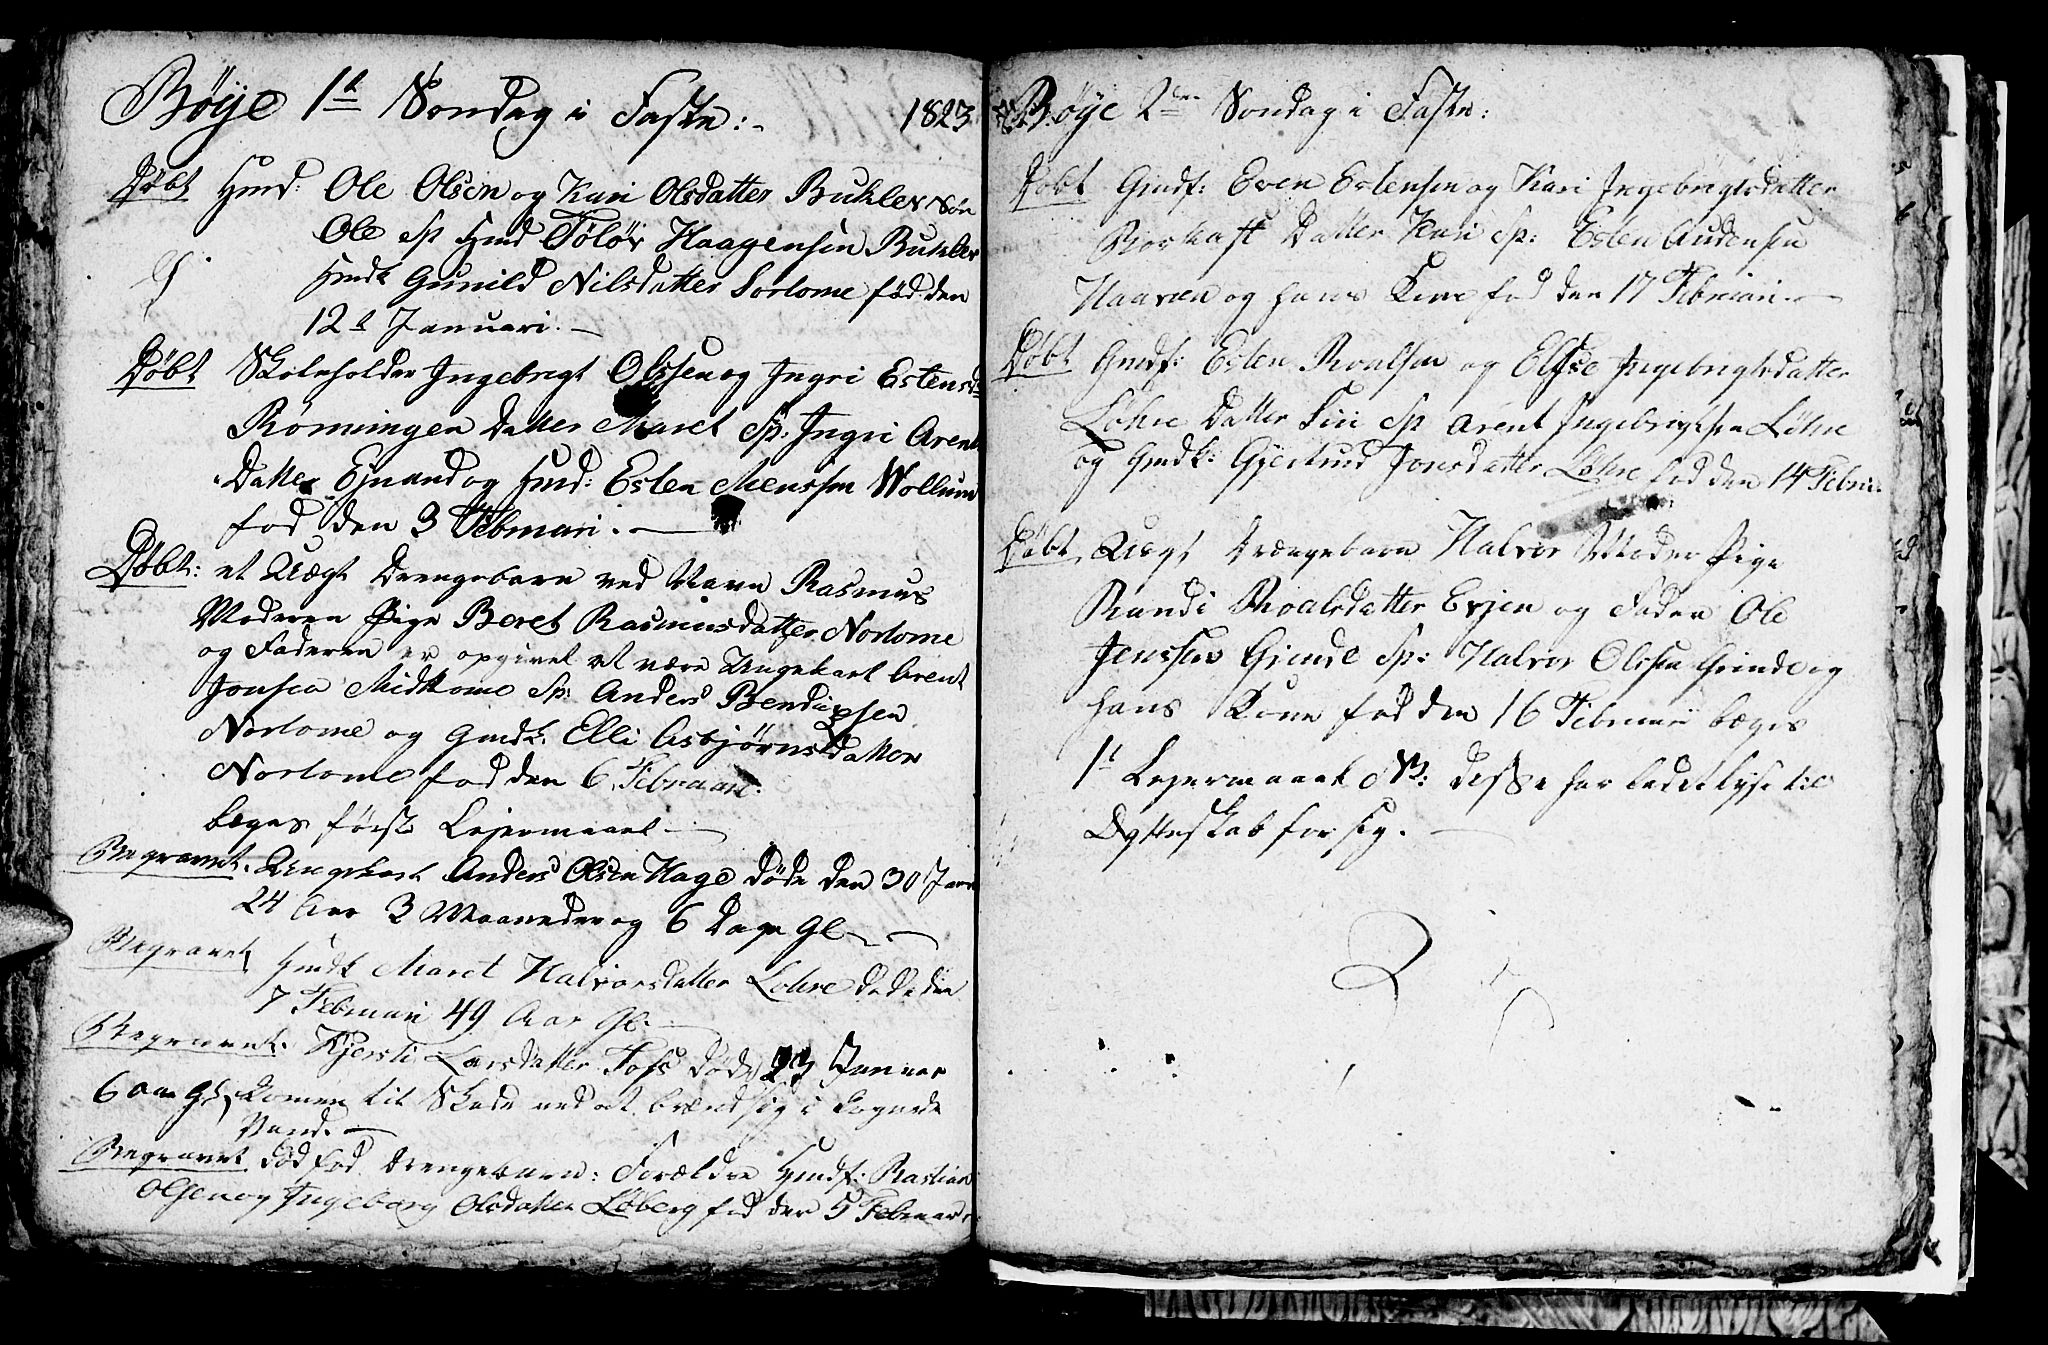 Böye 1ste Søndag i Faste:- 1823
Døbt Hmd: Ole Olsen og Kari Olsdatter Bukler Søn
Ole Sp Hmd Tølør Haagensen Bukler
Hmdk Gunild Nilsdatter Sorlome fød den
12te Januari.-
Døbt Skoleholder Ingebrigt Olssen og Ingri Estensd
Rømingen Datter Maret Sp: Ingri Arent
Datter Ejnand og Hmd: Esten Menssen Wollum
fød den 3 Februari.-
Døbt: et Uægt Drengebarn ved Navn Rasmus
Moderen Pige Beret Rasmusdatter Norlome
og Faderen er opgivet at være Ungekarl Arent
Jonsen Midlome Sp: Anders Bendixsen
Norlome og Gmdk: Elli Asbjørnsdatter
Norlome fød den 6 Februari.
beges første Lejermaael -
Begravet. Ungekarl Anders Olsen Hage døde den 30 Janr
24 Aar 3 Maaneder og 6 Dage Gl-
Begravet Hmdk Maret Halvorsdatter Lohre døde den
7 Februari 49 Aar Gl.
Begravet: Kjersti Larsdatter Foss døde 23 Januar
6 Aar Gl, komen til Skade ved at brænd sig i kogende
Vand.-
Begravet død fød Drengebarn: Forældre Hmdf: Bastian
Olsen og Ingeborg Olsdatter Løberg fød den 5 Februar
Böye 2den Søndag i Faste:
Døbt Gmdf: Even Estensen og Kari Ingebrigtsdatter
Datter Kari Sp: Esten Audensen
Haaven og hans Kone fød den 17 Februari.-
Døbt Gmdf: Esten Roalsen og Else Ingebrigtsdatter
Løhre Datter Siri Sp Arent Ingebrigtsen Løhre
og Gmdk: Gjertrud Jonsdatter Lohre fød den 14 Februa.
Døbt Uægt Drængebarn Halvor Moder Pige
Randi Roalsdatter Evjen og Fader Ole
Jenssen Grinde Sp: Halvor Olssen Grinde og
hans Kone fød den 16 Februarii beges
1st Lejermaael NB: disse har ladet lyse til
Ægteskab for sig.-